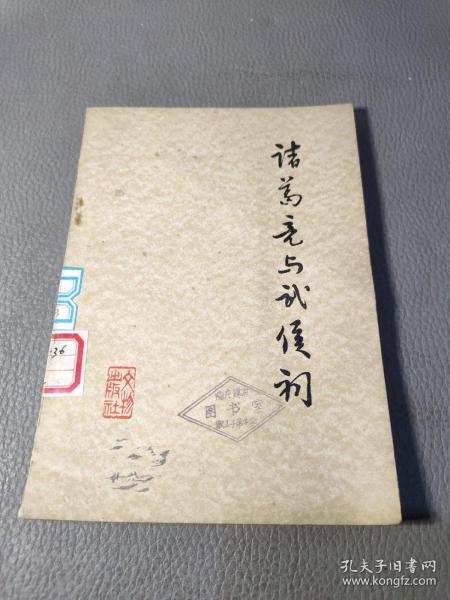 诸葛亮与武侯祠
文物
出版社
图书室
36
孔夫子旧书网
www.kongfz.com